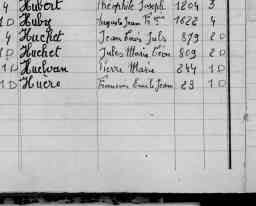 4 Hubert Théophile Joseph 1204 3
1D Huby Auguste Jean 1622 4
4 Huchet Jean Louis Jules 879 2D
D Huchet Jules Marie Léon 809 2D
1D Huelvan Pierre Marie 244 1D
1D Huéro François Emile Jean 29 1D